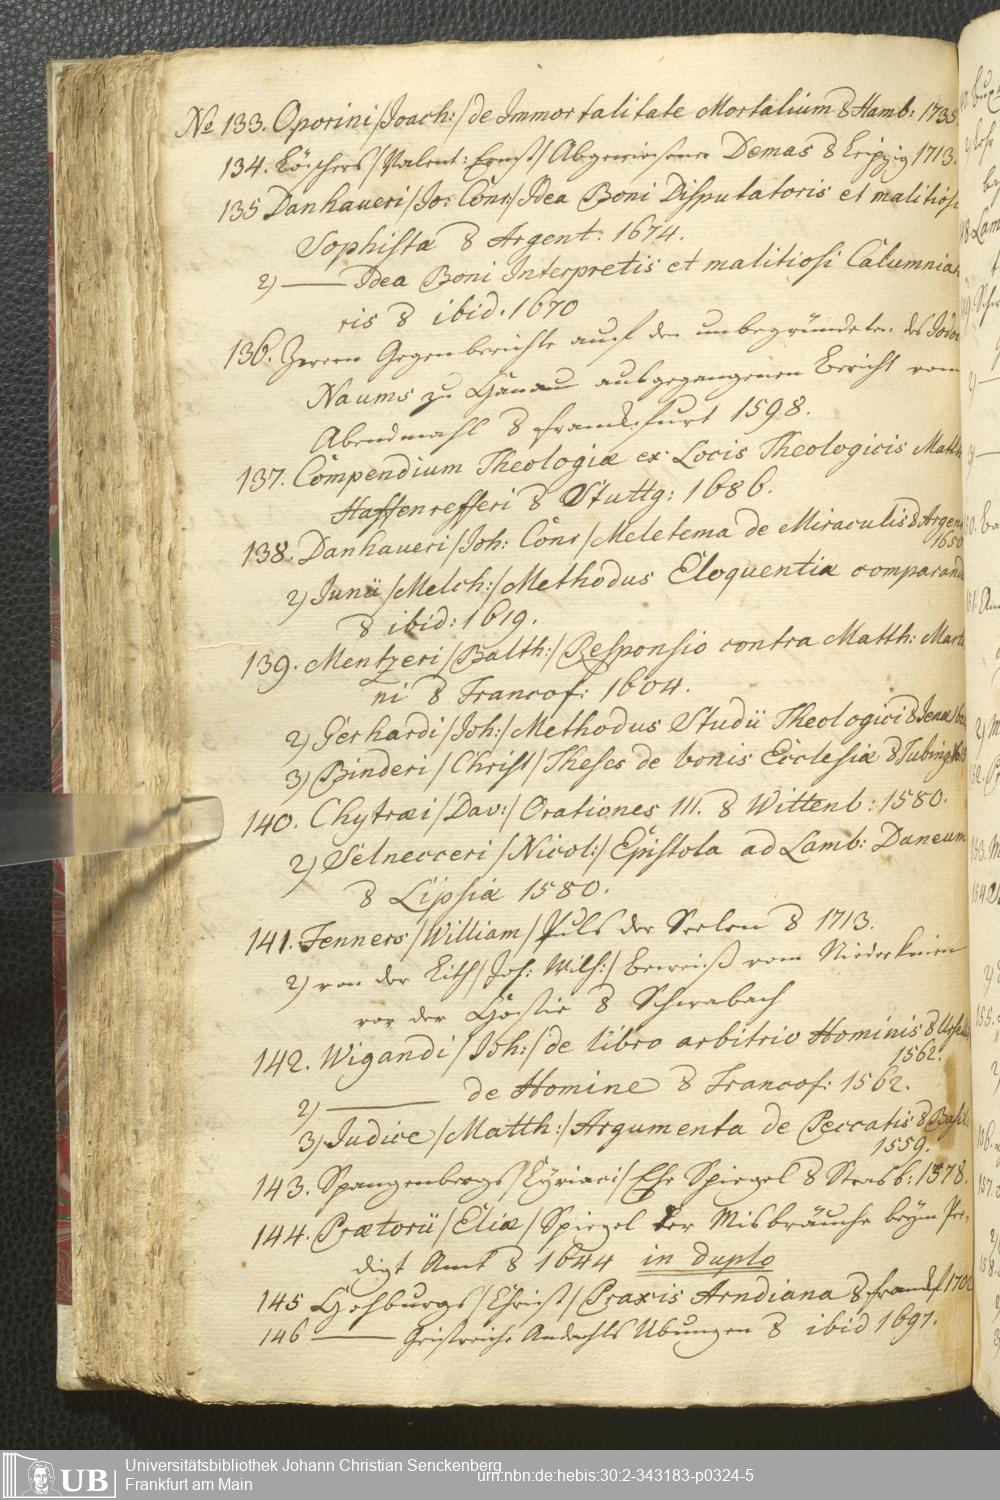 No 133. Oporini /Joach:/ de Immortalitate Mortalium 8 Hamb: 1735
134. Löschers /Valent: Ernst/ Abgewiesener Demas 8 Leipzig 1713.
135 Danhaueri /Jo: Conr/ Idea Boni Disputatoris et malitiosi
Sophista 8 Argent: 1674.
2) —— Idea Boni Interpretis et malitiosi Calumniato
ris 8 ibid. 1670
136. Gegenberichte auf den unbegründeten des Jodoc
Naums zu Hanau ausgegangenen Bericht vom
Abendmahl 8 franckfurt 1598.
137. Compendium Theologiæ ex Locis Theologicis Matth
Haffenrefferi 8 Stuttg: 1686.
138. Danhaueri /Joh: Conr/ Meletema de Miraculis 8 Argent
1650
2) Junii /Melch:/ Methodus Eloquentiæ comparandæ
8 ibid: 1619.
139. Mentzeri /Balth:/ Responsio contra Matth: Marti
ni 8 Francof: 1604.
2) Gerhardi /Joh:/ Methodus Studii Theologici 8 Jenæ
3) Binderi /Christ/ Theses de bonis Ecclesiæ 8 Tubing
140. Chytræi /Dav:/ Orationes III. 8 Wittenb: 1580.
2) Selnecceri /Nicol:/ Epistola ad Lamb: Daneum
8 Lipsiæ 1580.
141. Fenners /William/ Puls der Seelen 8 1713.
2) von der Lith /Joh: Wilh:/ Beweiß vom Niederknien
vor der Hostie 8 Schwabach
142. Wigandi /Joh:/ de libro arbitrio Hominis 8 Ursell
1562.
2) —— de Homine 8 Francof: 1562.
3) Judice /Matth:/ Argumenta de Peccatis 8 Basil:
1559.
143. Spangenbergs /Cyriaci/ Ehe Spiegel 8 Strasb: 1578.
144. Prætorii /Eliæ/ Spiegel der Misbräuche beym Pre-
digt Amt 8 1644 in duplo
145 Hohburgs /Christ/ Praxis Arndiana 8 franckf 1702
146 —— Geistreiche Andachts Ubungen 8 ibid 1697.
UB
Universitätsbibliothek Johann Christian Senckenberg
Frankfurt am Main
urn:nbn:de:hebis:30:2-343183-p0324-5